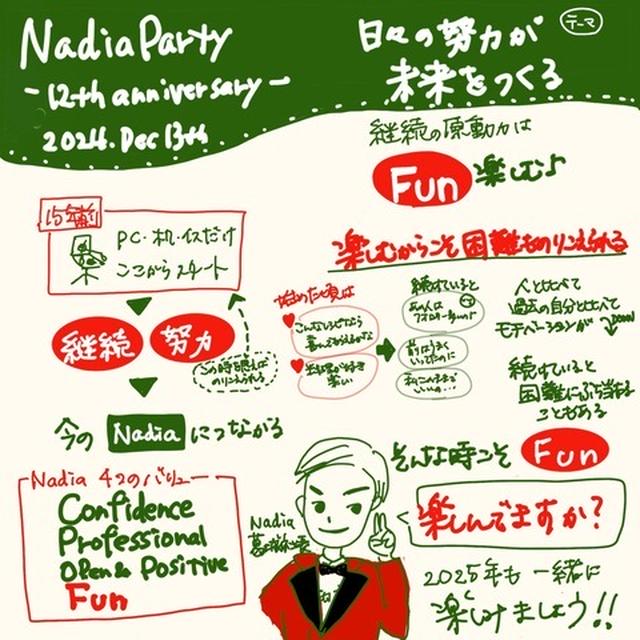 Nadia Party
-12th anniversary-
2024. Dec 13th
テーマ
日々の努力が
未来をつくる
継続の原動力は
Fun 楽しむ♪
楽しむからこそ困難をのりこえられる
15年前
PC・机・イスだけ
ここからスタート
継続
努力
この時を思えば
のりこえられる
今の Nadia につながる
Nadia 4つのバリュー
Confidence
Professional
Open & Positive
Fun
始めた頃は
こんなレシピなら
喜んでもらえるかな
お料理が好き
楽しい
続けていると
あの人は
前はうまく
いってたのに
私このままで
いいの…
人と比べて
過去の自分と比べて
モチベーションが DOWN
続けていると
困難にぶち当たる
こともある
そんな時こそ Fun
楽しんでますか?
Nadia
2025年も 一緒に
楽しみましょう!!